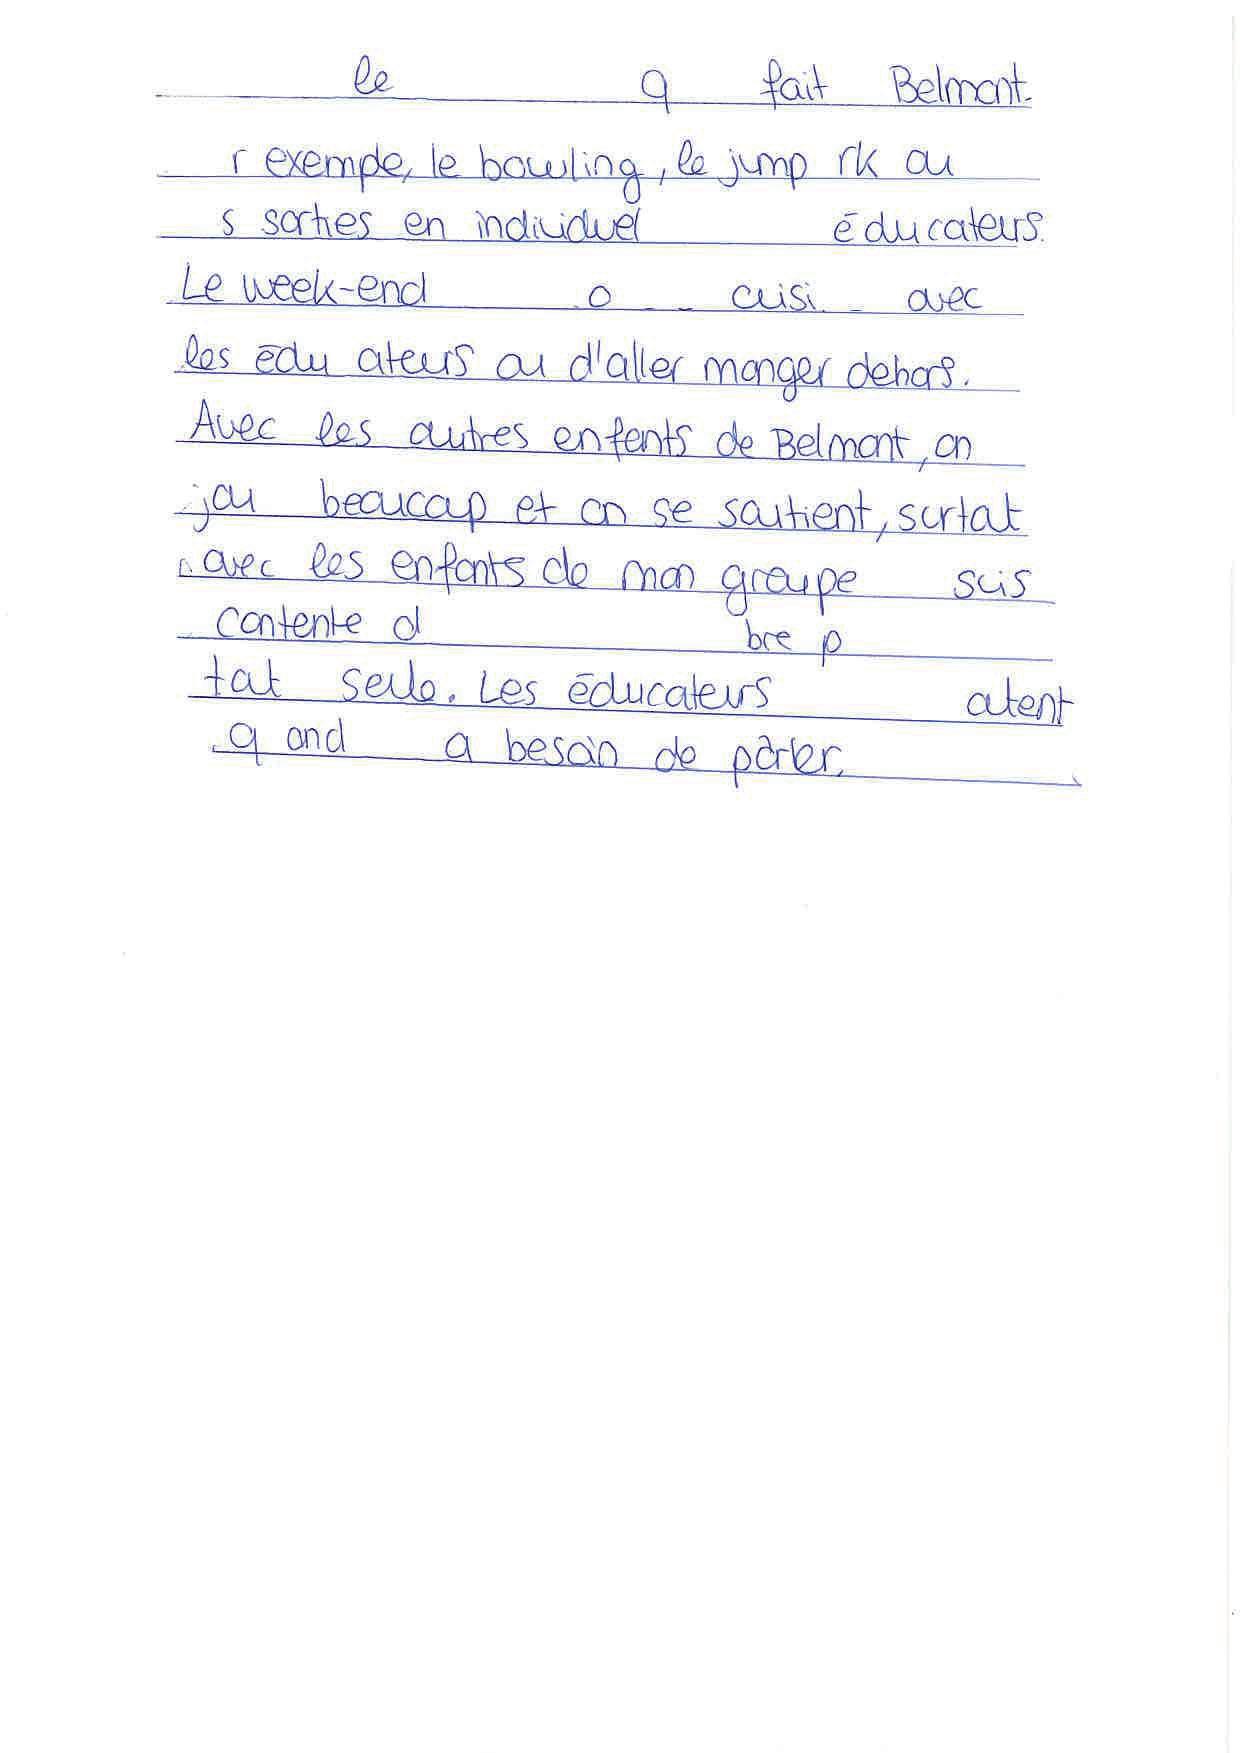 le q fait Belmont.
r exemple, le bowling, le jump rk ou
s sorties en individuel éducateurs.
Le week-end o cuisi avec
les édu ateurs ou d'aller manger dehors.
Avec les autres enfents de Belmont, on
jou beaucoup et on se soutient, surtout
avec les enfants de mon groupe suis
contente d bre p
tat seule. Les éducateurs outent
q and a besoin de parler.